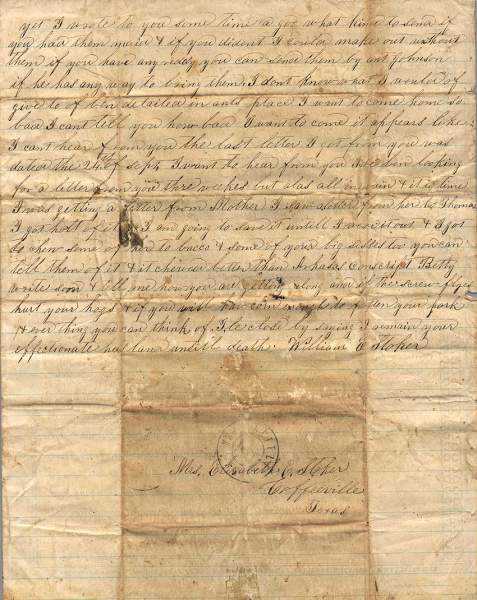 yet I wrote to you some time a goe what kind to send if
you had them maid & if you dident I could make out without
them if you have any ready you can send them by ant Johnson
if he has any way to bring them. I dont know what I would of
give to of bin detailed in ants place I want to come home so
bad I cant tell you how bad I want to come it appears like
I cant hear from you the last letter I got from you was
dated the 24th of sept I want to hear from you Ive bin looking
for a letter from you three weekes but alas all in vain & it is time
I was getting a letter from Mother I saw a letter from her to Thomas
I got holt of it I am going to save it untill I wear it out & I got
to chew some of her to bacco & some of your big sisters too you can
tell them of it & it chewed better than Arkasas Conscript Betty
write soon & tell me how you are getting along and if the screw flyes
hurt your hogs & if you will hav corn enough to fatten your pork
& ever thing you can think of Ile close by saying I remain your
effectionate husband until death. William E Stoker
Mrs. Elizabeth E. Stoker
Coffeeville
Texas